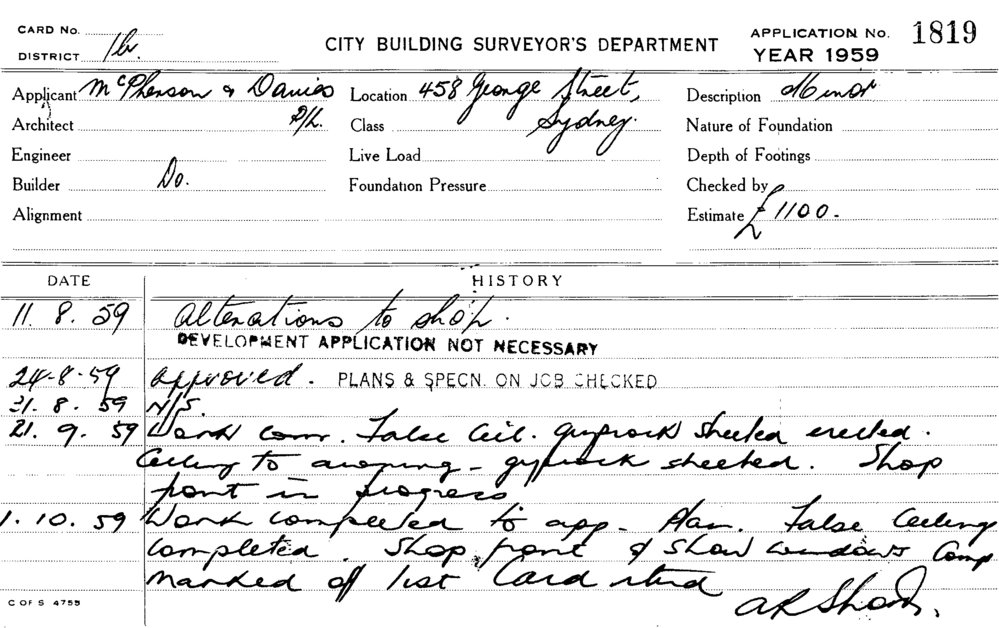 CARD No.
DISTRICT 1b.
CITY BUILDING SURVEYOR'S DEPARTMENT
APPLICATION No. 1819
YEAR 1959
Applicant McPherson & Davies P/L.
Architect
Engineer
Builder Do.
Alignment
Location 458 George Street, Sydney.
Class
Live Load
Foundation Pressure
Description Minor
Nature of Foundation
Depth of Footings
Checked by
Estimate £1100-
DATE HISTORY
11. 8. 59 Alterations to shop.
DEVELOPMENT APPLICATION NOT NECESSARY
24-8-59 Approved. PLANS & SPECN. ON JOB CHECKED
31. 8. 59 N/S.
21. 9. 59 Work com. False Ceil. gyprock sheeted erected.
Ceiling to awning - gyprock sheeted. Shop
front in progress
1. 10. 59 Work completed to app. Plan. False Ceiling
completed. Shop front & Show windows Comp
Marked off list Card rtnd
C OF S 4755